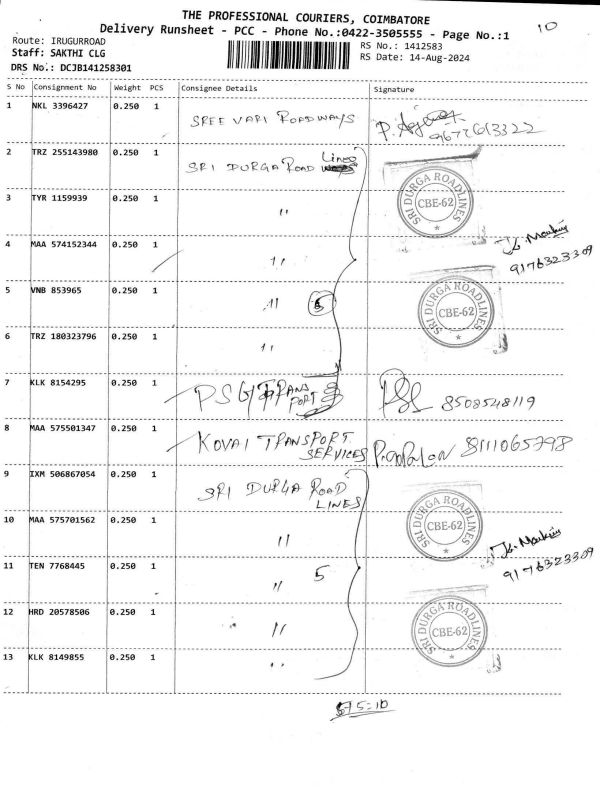 THE PROFESSIONAL COURIERS, COIMBATORE
10
Delivery Runsheet - PCC - Phone No.:0422-3505555 - Page No.:1
Route: IRUGURROAD
RS No.: 1412583
Staff: SAKTHI CLG
RS Date: 14-Aug-2024
DRS No.: DCJB141258301
S No Consignment No Weight PCS Consignee Details Signature
1 NKL 3396427 0.250 1 SREE VARI ROADWAYS
9677613322
2 TRZ 255143980 0.250 1 SRI DURGA ROAD LINES
SRI DURGA ROADLINES
CBE-62
3 TYR 1159939 0.250 1 "
4 MAA 574152344 0.250 1 "
9176323309
5 VNB 853965 0.250 1 " 5
SRI DURGA ROADLINES
CBE-62
6 TRZ 180323796 0.250 1 "
7 KLK 8154295 0.250 1 PSG TRANS
PORT
8508548119
8 MAA 575501347 0.250 1 KOVAI TRANSPORT
SERVICES
8111065798
9 IXM 506867054 0.250 1 SRI DURGA ROAD
LINES
SRI DURGA ROADLINES
CBE-62
10 MAA 575701562 0.250 1 "
9176323309
11 TEN 7768445 0.250 1 " 5
12 HRD 20578506 0.250 1 "
SRI DURGA ROADLINES
CBE-62
13 KLK 8149855 0.250 1 "
5=10